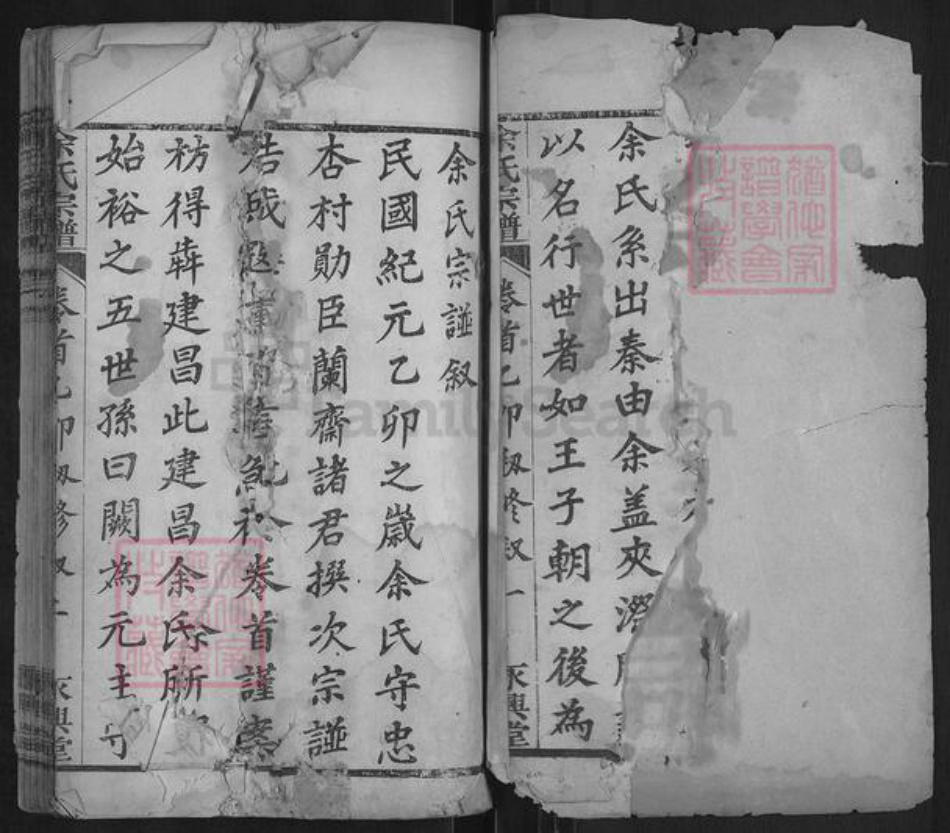 余氏系出秦由余盖夾漈
以名行世者如王子朝之後為
余氏宗譜 卷首乙卯叙修叙一 永興堂
余氏宗譜叙
民國紀元乙卯之歲余氏守忠
杏村勛臣蘭齋諸君撰次宗譜
告成 卷首謹案
枋得犇建昌此建昌余氏所
始裕之五世孫曰闕為元主
余氏宗譜 卷首乙卯叙修叙二 永興堂
FamilySearch